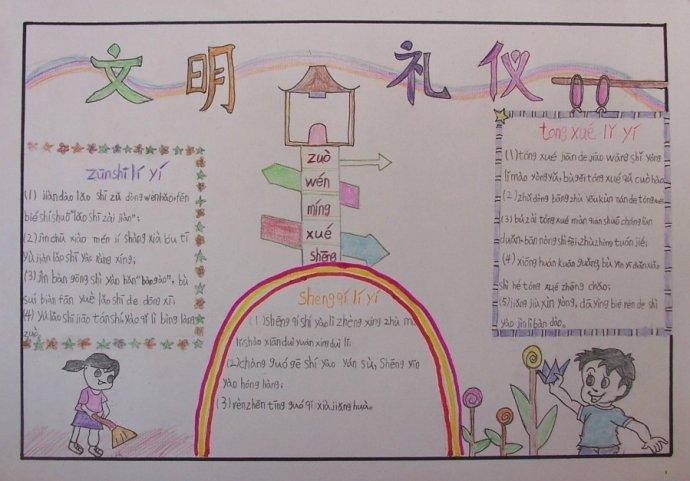 文明礼仪
zūn shī lǐ yí
(1) jiàn dào lǎo shī zǔ dòng wèn hǎo, fēn
bié shí shuō "lǎo shī zài jiàn";
(2) jìn chū xiào mén jí shàng xià lóu tī
yù jiàn lǎo shī yào ràng xíng;
(3) jìn bàn gōng shì yào hǎn "bào gào", bù
suí biàn fān yuè lǎo shī de dōng xi;
(4) yǔ lǎo shī jiāo tán shí yào qǐ lì bìng ràng
zuò
zuò
wén
míng
xué
shēng
shēng qí lǐ yí
(1) shēng qí shí yào lì zhèng xíng zhù mù
lǐ, shào xiān duì yuán xíng duì lǐ;
(2) chàng guó gē shí yào yán sù, shēng yīn
yào hóng liàng;
(3) rèn zhēn tīng guó qí xià jiǎng huà.
tóng xué lǐ yí
(1) tóng xué jiān de jiāo wǎng shǐ yòng
lǐ mào yòng yǔ, bù gěi tóng xué qǔ chuò hào
(2) zhǔ dòng bāng zhù yǒu kùn nán de tóng xué
(3) bù zài tóng xué miàn qián shuō cháng
duǎn, bān nòng shì fēi, zhù zhòng tuán jié;
(4) xiōng huái kuān guǎng, bù yīn yì diǎn xiǎo
shì hé tóng xué zhēng chǎo;
(5) jiǎng jiū xìn yòng, dā yìng bié rén de shì
yào jìn lì bàn dào.